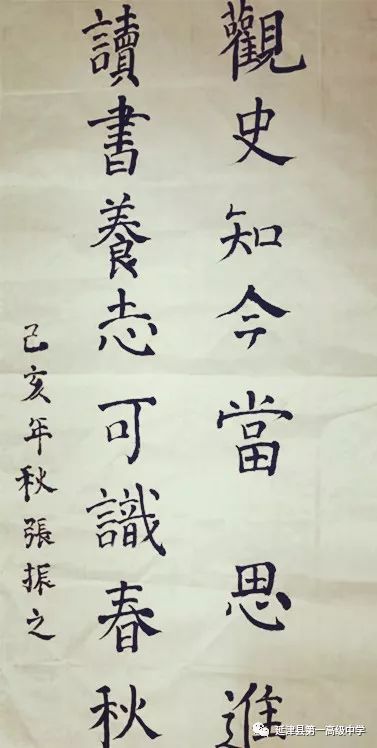 觀史知今當思進
讀書養志可識春秋
己亥年秋張振之
延津县第一高级中学